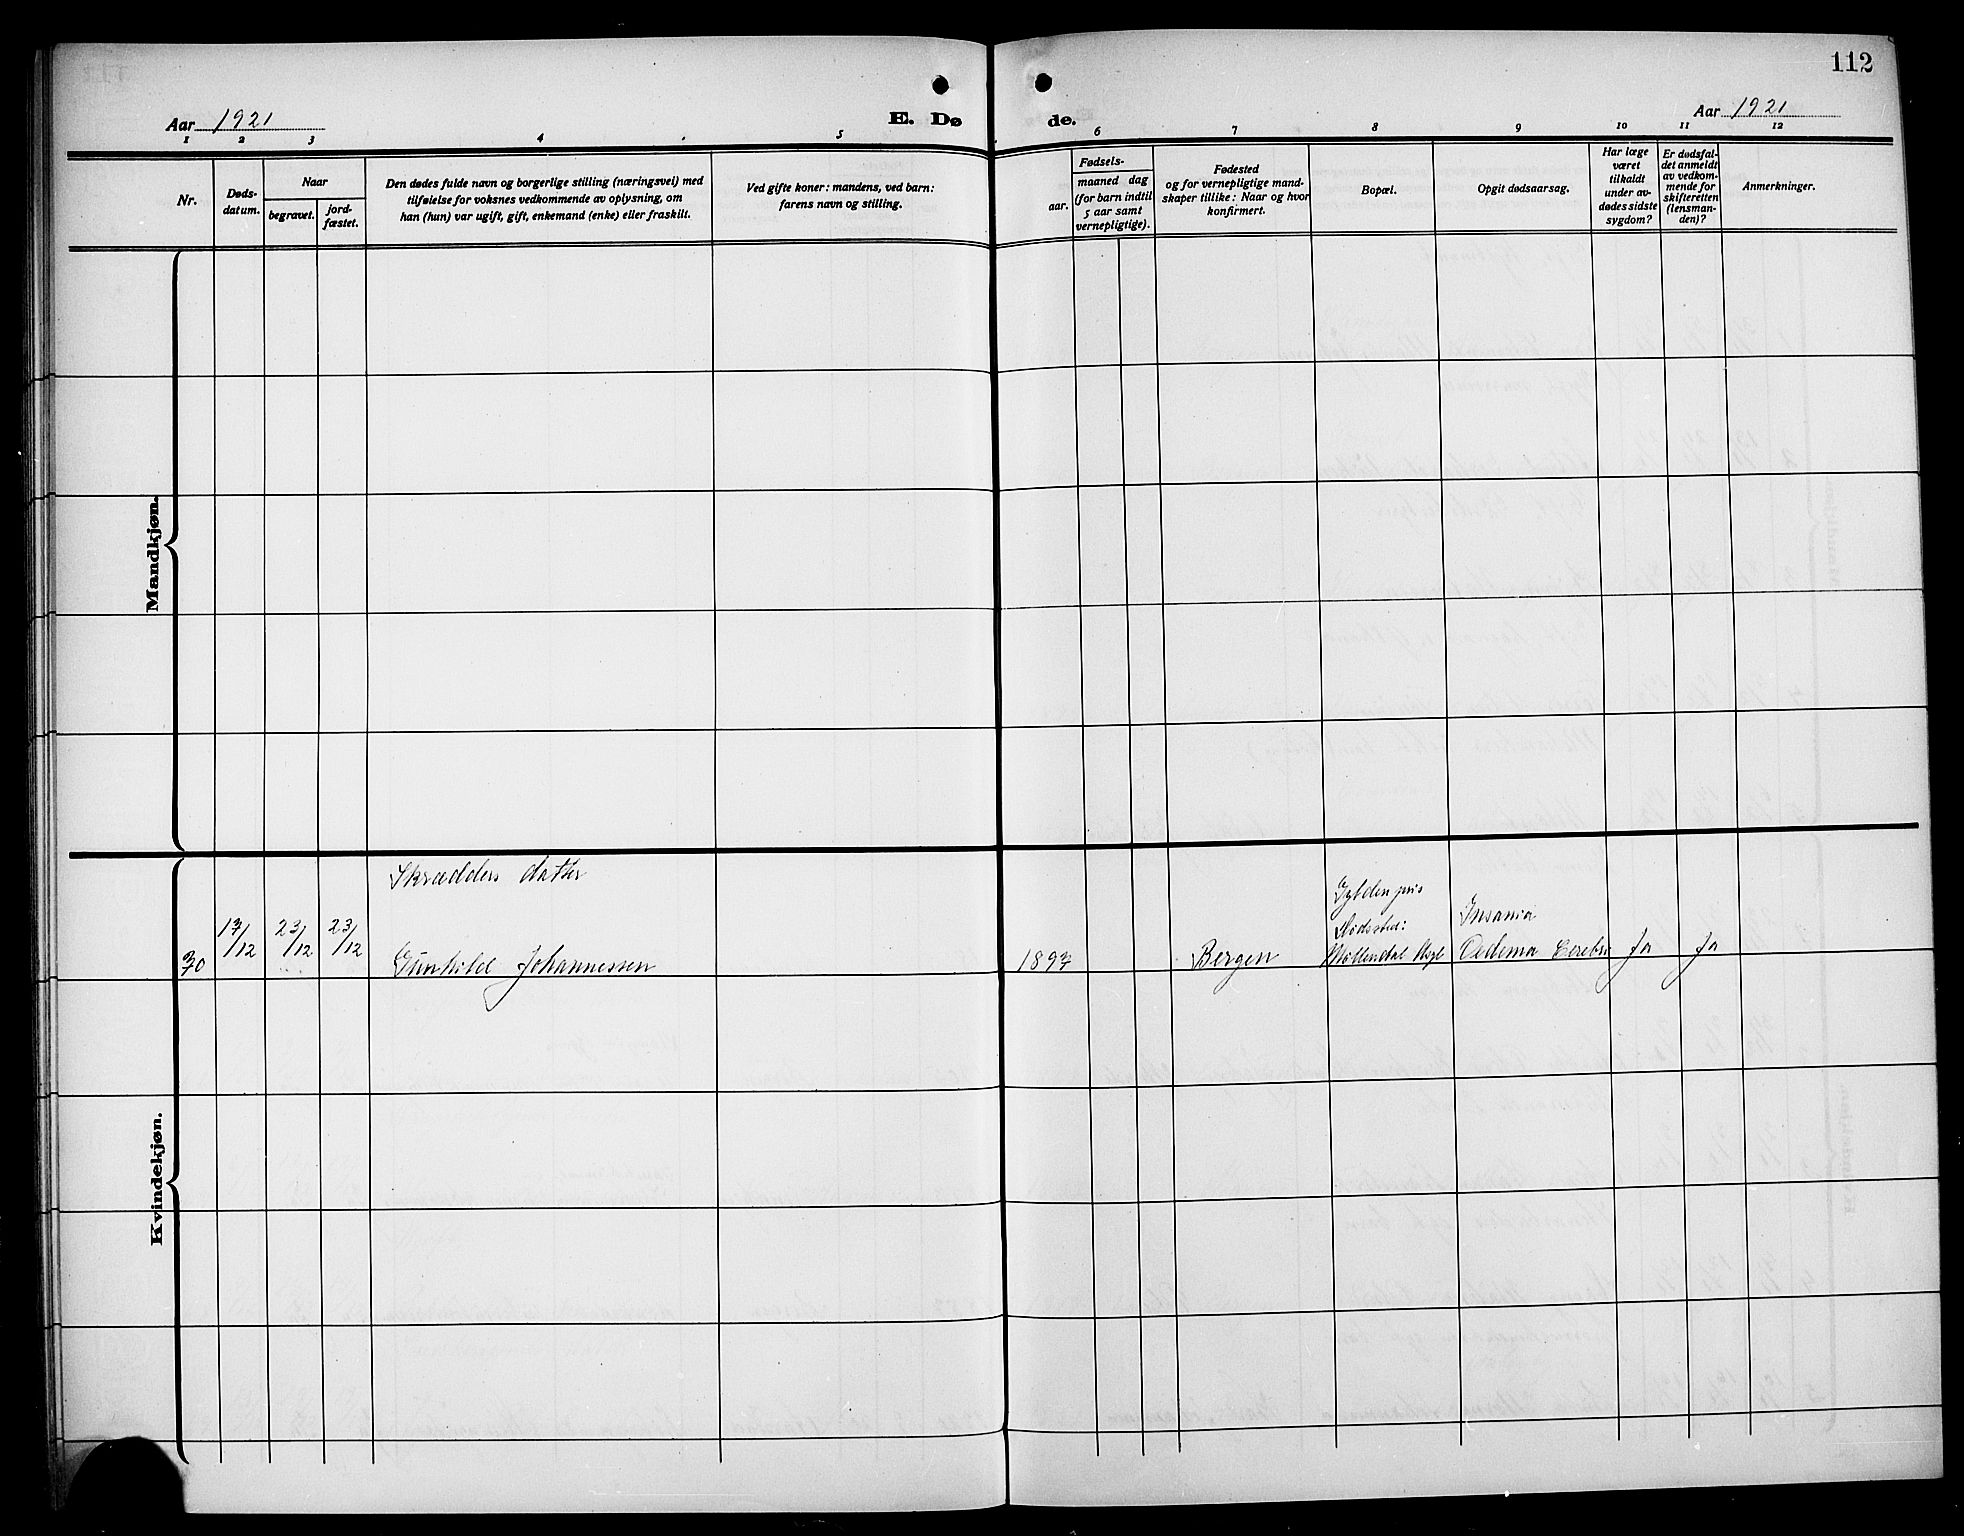 112
Aar 1921
E. Dø
de.
Aar 1921
1 2 3 4 5 6 7 8 9 10 11 12
Nr.
Døds-
datum.
Naar
begravet.
jord-
fæstet.
Den dødes fulde navn og borgerlige stilling (næringsvei) med
tilføielse for voksnes vedkommende av oplysning, om
han (hun) var ugift, gift, enkemand (enke) eller fraskilt.
Ved gifte koner: mandens, ved barn:
farens navn og stilling.
Fødsels-
aar.
maaned dag
(for barn indtil
5 aar samt
vernepligtige).
Fødested
og for vernepligtige mand-
skaper tillike: Naar og hvor
konfirmert.
Bopæl.
Opgit dødsaarsag.
Har læge
været
tilkaldt
under av-
dødes sidste
sygdom?
Er dødsfal-
det anmeldt
av vedkom-
mende for
skifteretten
(lensman-
den)?
Anmerkninger.
Mandkjøn.
Kvindekjøn.
30
17/12
23/12
23/12
Skrædders datter
Gunhild Johannessen
1897
Bergen
Gyldenpris
Dødssted:
Møllendal Asyl
Insania
Oedema Cerebri
Ja
Ja